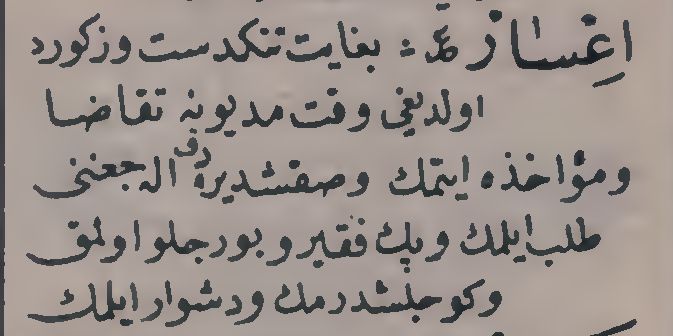 اِعْسَارْ ع : بغايت تنكدست و زكورد
اولديغى وقت مديونه تقاضا
ومؤاخذه ايتمك وصقشديره رق اله جغنى
طلب ايلمك وپك فقير و بورجلو اولمق
وكوجلشدرمك ودشوار ايلمك